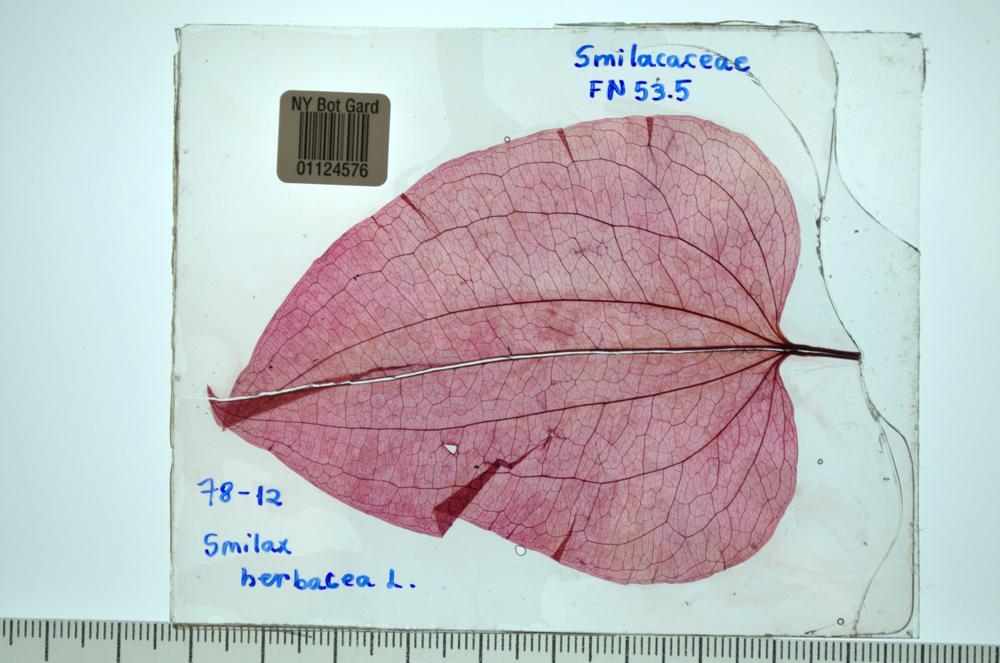 Smilacaceae
FN 53.5
NY Bot Gard
01124576
78-12
Smilax
herbacea L.